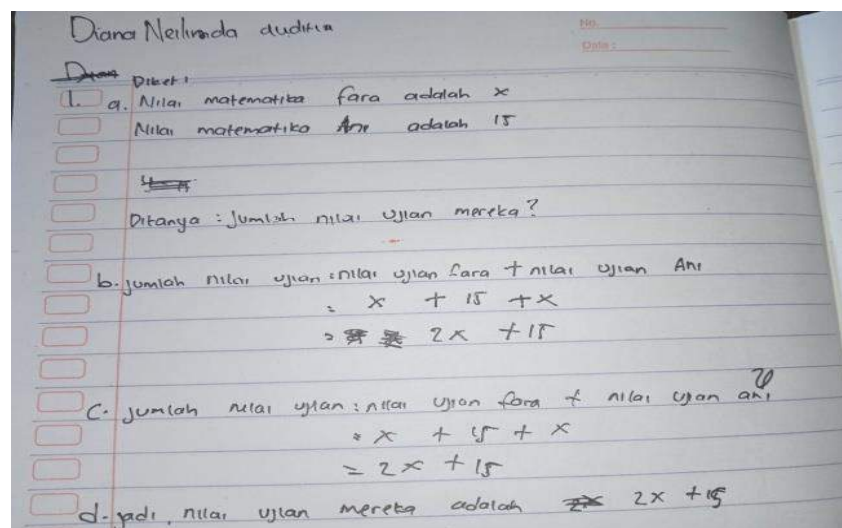 Diana Neilinda auditia
No.
Date :
Diket :
1. a. Nilai matematika fara adalah x
Nilai matematika Ani adalah 15
Ditanya : Jumlah nilai ujian mereka?
b. jumlah nilai ujian : nilai ujian fara + nilai ujian Ani
= x + 15 + x
= 2x + 15
C. jumlah nilai ujian : nilai ujian fara + nilai ujan ani
= x + 15 + x
= 2x + 15
d. jadi, nilai ujian mereka adalah 2x + 15